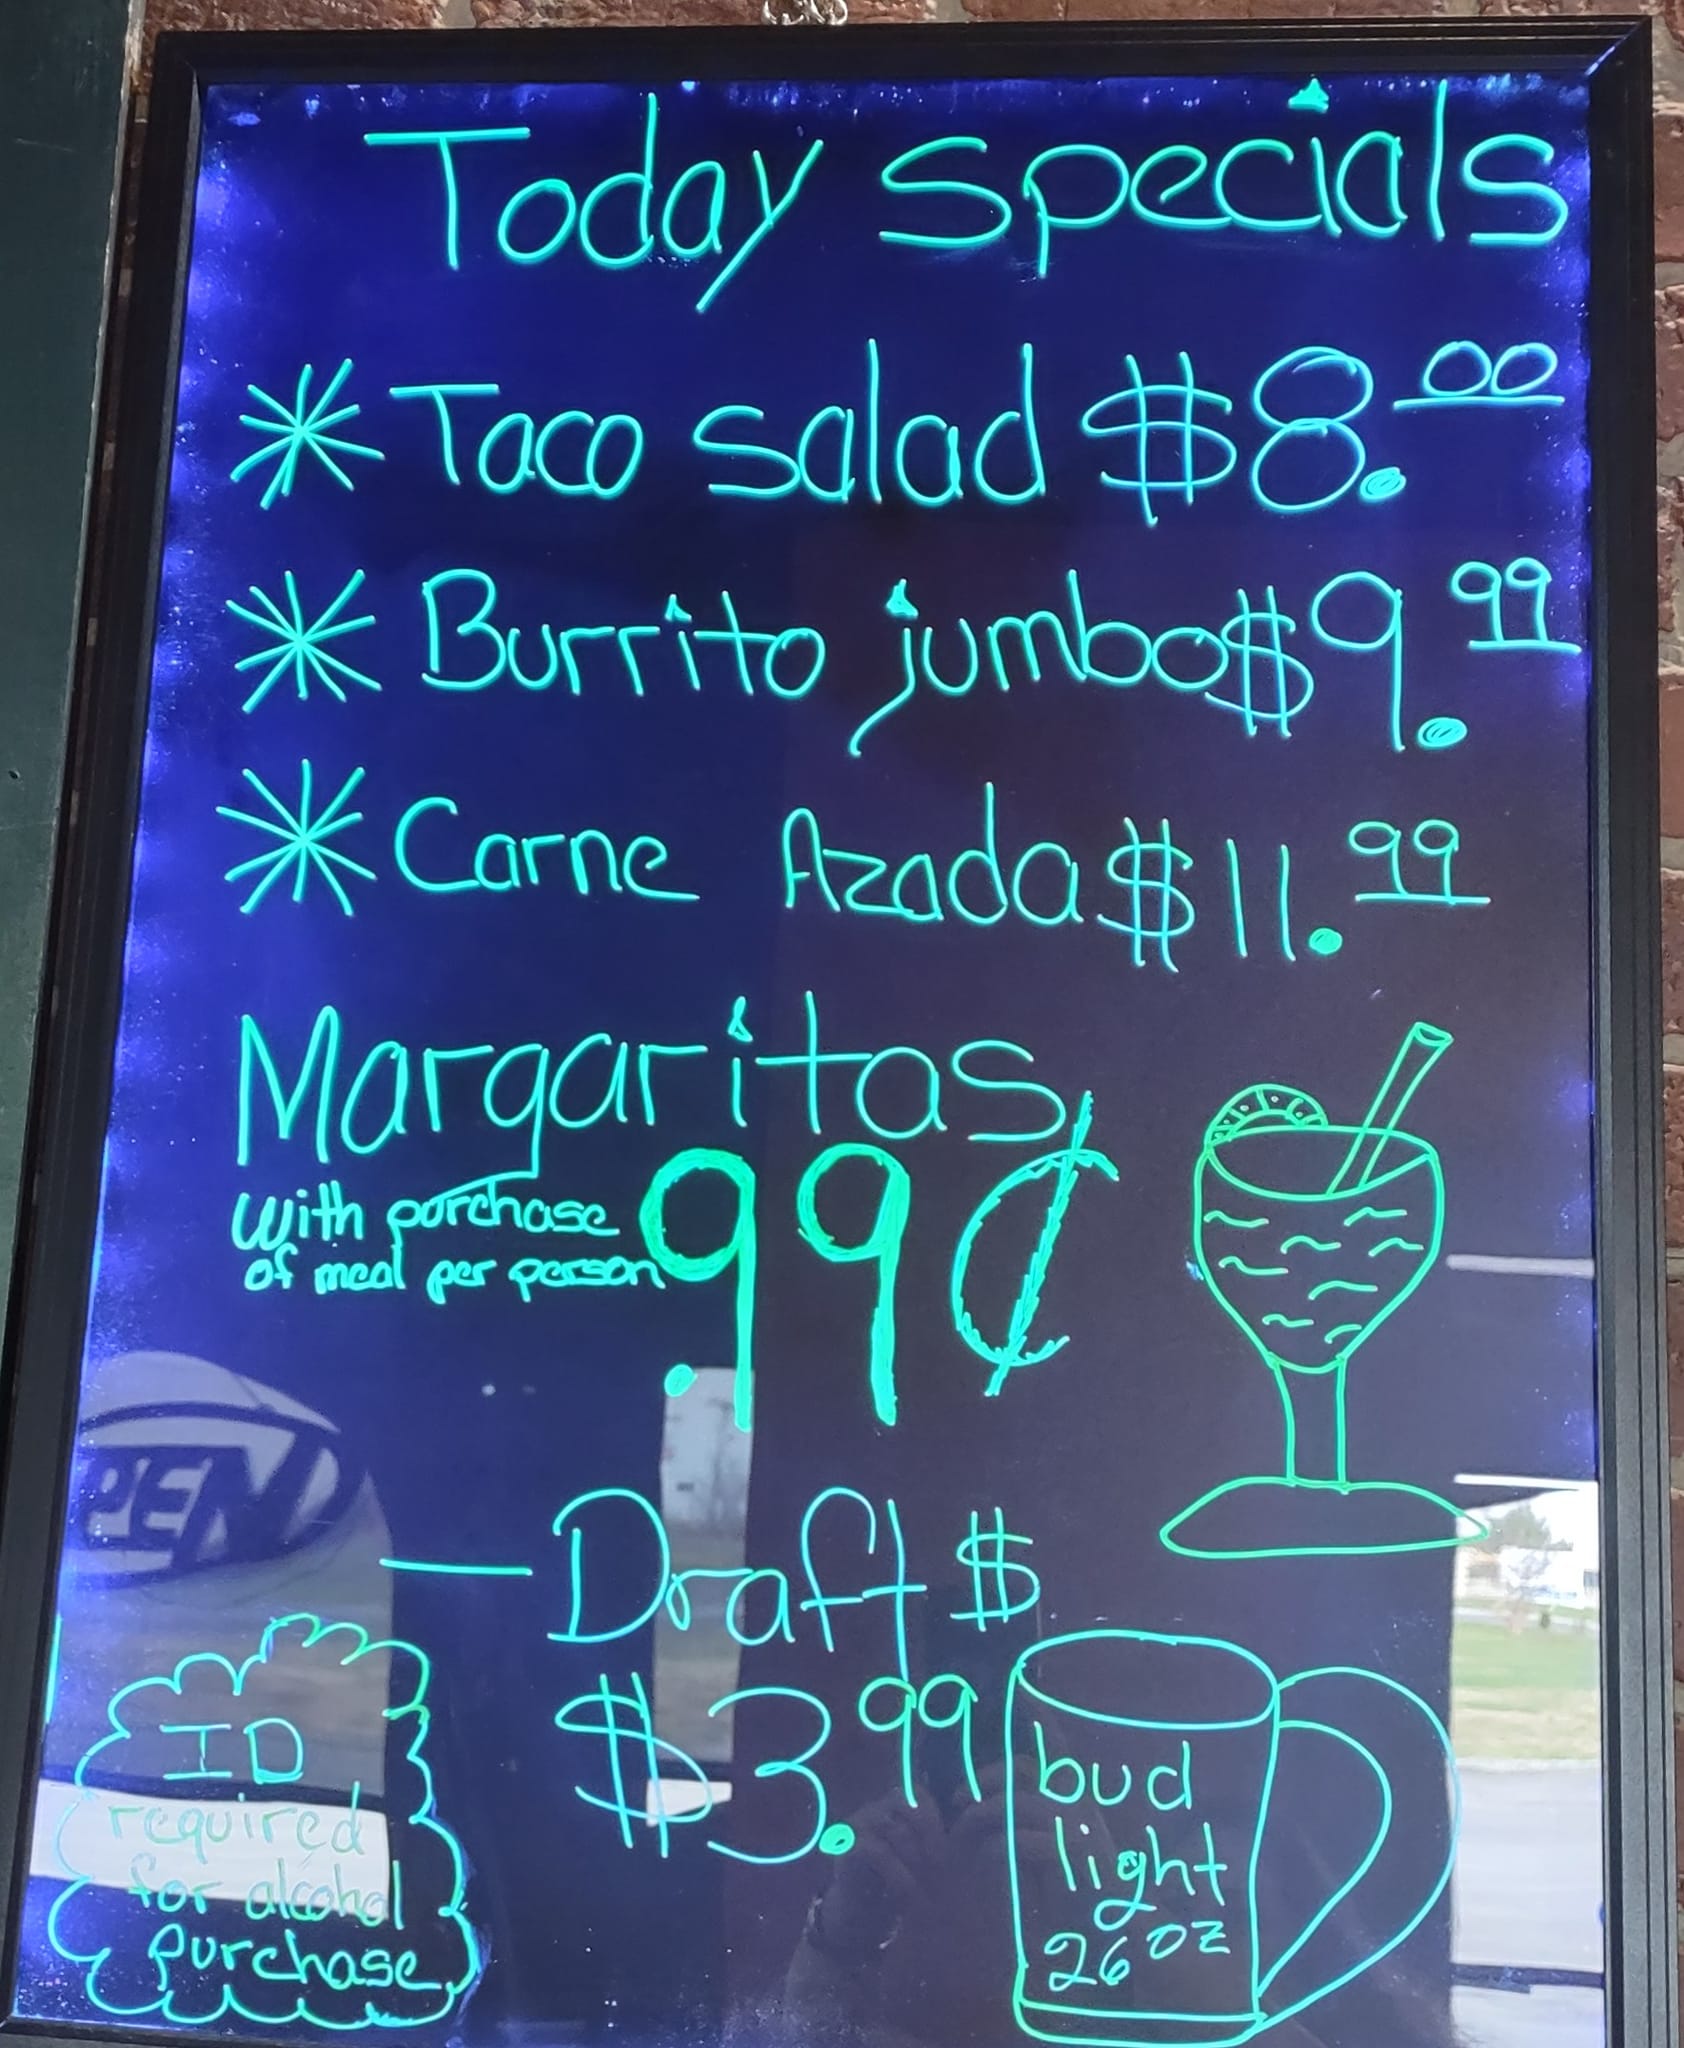 Today specials
Taco salad $8.00
Burrito jumbo $9.99
Carne Azada $11.99
Margaritas
with purchase
of meal per person
.99¢
Draft $
$3.99
bud
light
26 oz
ID
required
for alcohol
purchase